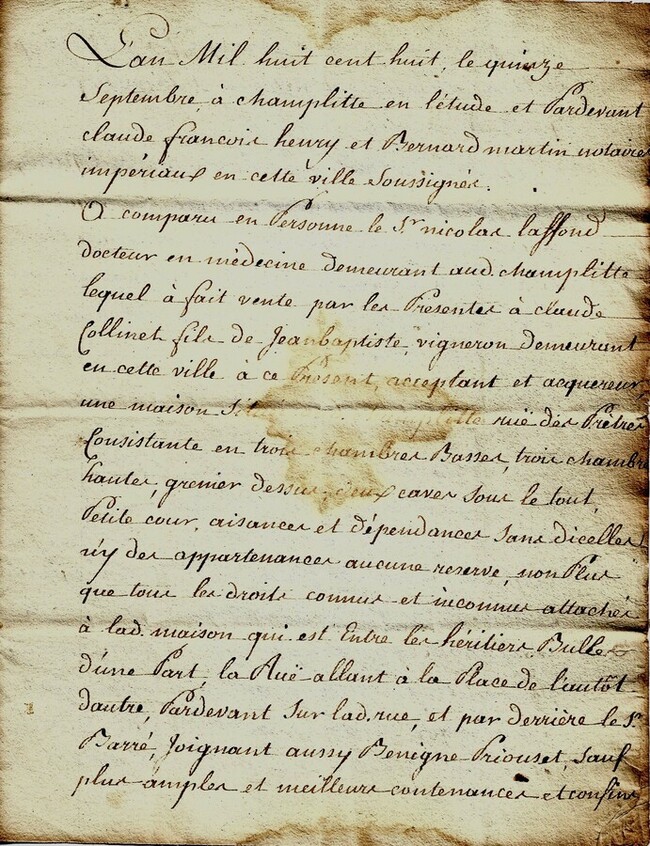 L'an Mil huit cent huit, le quinze
Septembre à champlitte en l'étude et Pardevant
claude françois henry et Bernard martin notaires
impériaux en cette ville soussignés.
A comparu en Personne le Sr nicolas laffond
docteur en médecine demeurant aud. champlitte
lequel à fait vente par les Presentes à claude
Collinet fils de Jeanbaptiste, vigneron demeurant
en cette ville à ce Présent, acceptant et acquereur,
une maison rüe des Prêtres
Consistante en trois chambres Basses, trois chambres
hautes, grenier dessus, deux caves sous le tout,
Petite cour, aisances et dépendances sans dicelles
n'y des appartenances aucune reserve, non Plus
que tous les droits connus et inconnus attachés
à lad. maison qui est Entre les héritiers Bulle
d'une Part, la Ruë allant à la Place de l'autôt
dautre, Pardevant sur lad. rue, et par derrière le Sr
Barré, Joignant aussy Benigne Priouset, sauf
plus amples et meilleurs contenances et confins